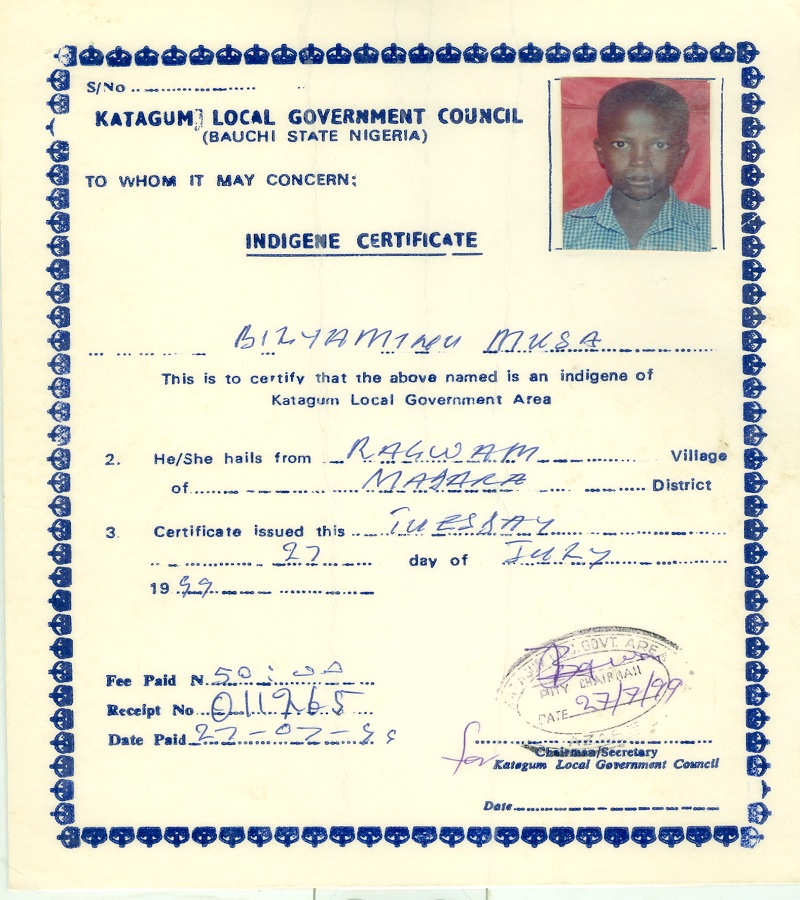 S/No
KATAGUM LOCAL GOVERNMENT COUNCIL
(BAUCHI STATE NIGERIA)
TO WHOM IT MAY CONCERN;
INDIGENE CERTIFICATE
BINYAMINU MUSA
This is to certify that the above named is an indigene of
Katagum Local Government Area
2. He/She hails from RAGWAM Village
of MADARA District
3. Certificate issued this TUESDAY
27 day of JULY
1999
Fee Paid N 50:00
Receipt No 011265
Date Paid 27-07-99
GOVT. AREA
CHAIRMAN
DATE 27/7/99
for
Chairman/Secretary
Katagum Local Government Council
Date